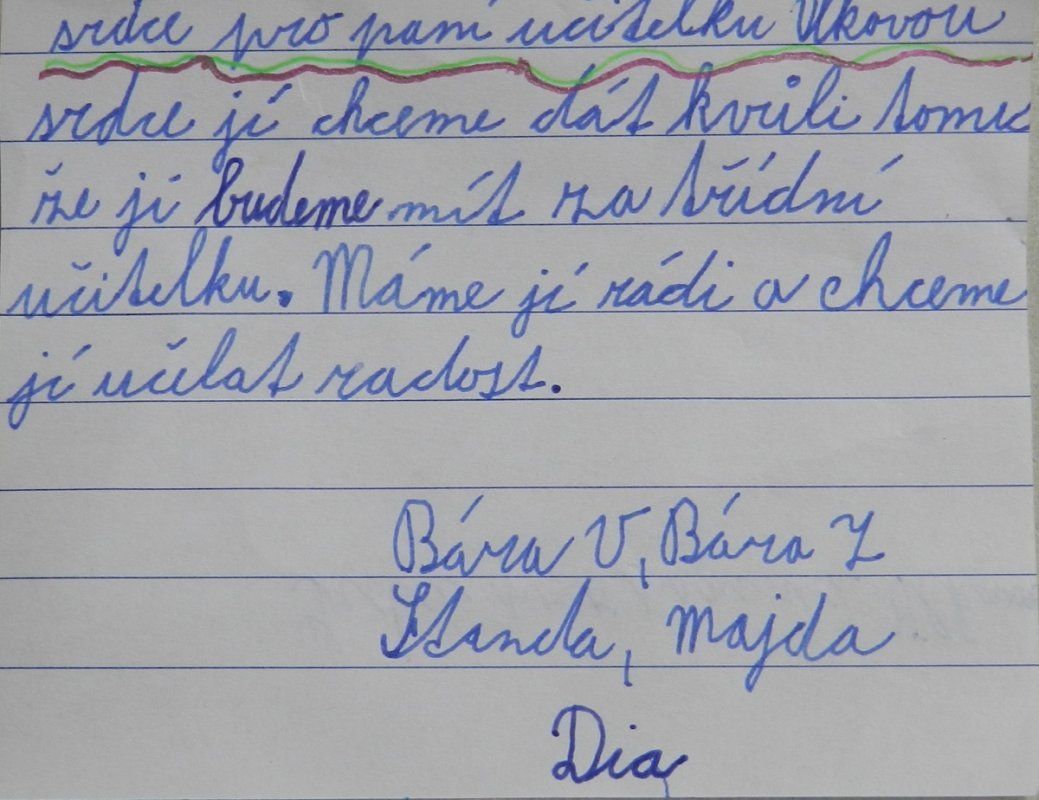 srdce pro paní učitelku Vlkovou
srdce jí chceme dát kvůli tomu
že jí budeme mít za třídní
učitelku. Máme jí rádi a chceme
jí učelat radost.
Bára V, Bára Z
Standa, Majda
Dia,